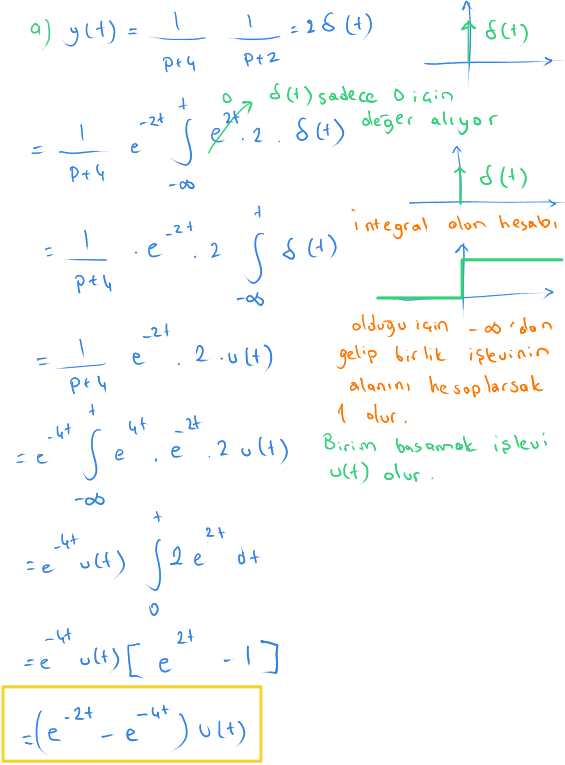 a) y(t) = 1/(p+4) 1/(p+2) = 2δ(t)
δ(t)
= 1/(p+4) e^(-2t) ∫_(-∞)^t e^(2t) . 2 . δ(t)
0
δ(t) sadece 0 için
değer alıyor
δ(t)
= 1/(p+4) . e^(-2t) . 2 ∫_(-∞)^t δ(t)
integral alan hesabı
= 1/(p+4) e^(-2t) . 2 . u(t)
olduğu için -∞'dan
gelip birlik işlevinin
alanını hesaplarsak
1 olur.
= e^(-4t) ∫_(-∞)^t e^(4t) . e^(-2t) . 2 u(t)
Birim basamak işlevi
u(t) olur.
= e^(-4t) u(t) ∫_0^t 2 e^(2t) dt
= e^(-4t) u(t) [ e^(2t) - 1 ]
= (e^(-2t) - e^(-4t)) u(t)